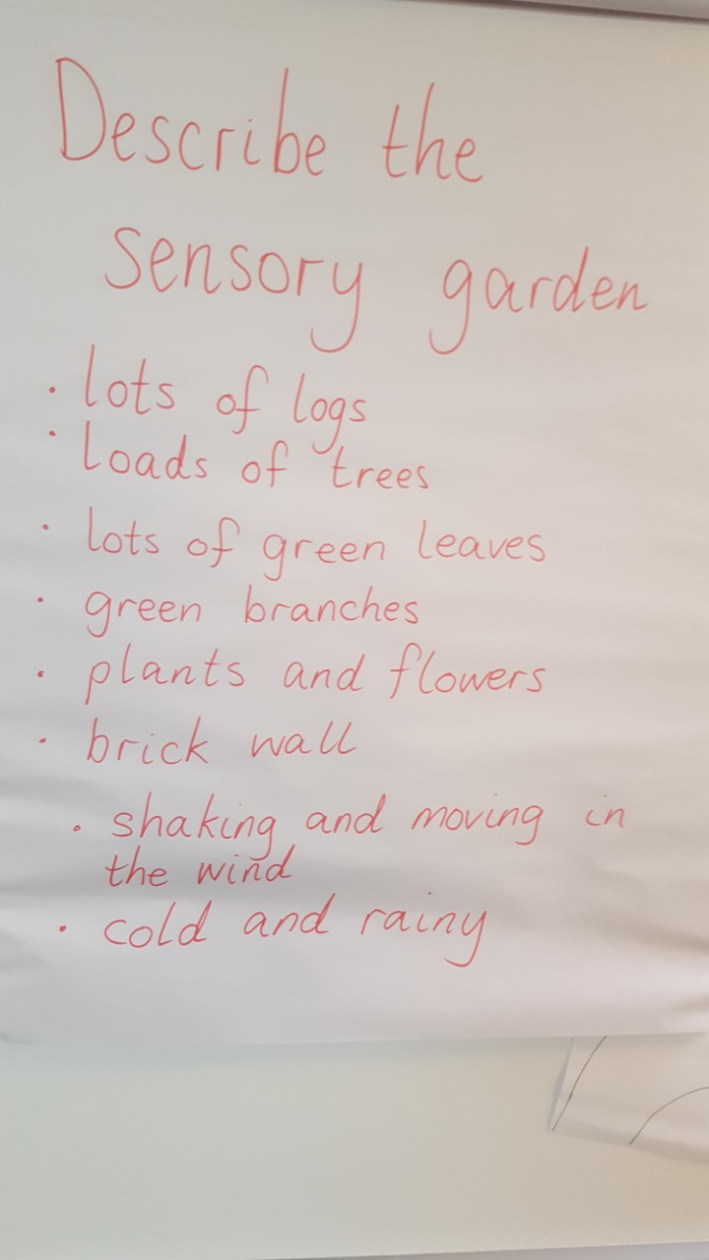 Describe the
sensory garden
· lots of logs
· loads of trees
· lots of green leaves
· green branches
· plants and flowers
· brick wall
· shaking and moving in
the wind
· cold and rainy